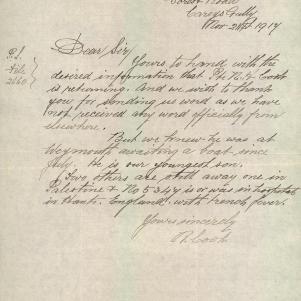 Forest Road
Careys Gully
Nov 24th 1917
P.S.
File
2660
Dear Sir
Yours to hand with the
desired information that Pte N. G. Cook
is returning. And we wish to thank
you for sending us word as we have
not received any word officially from
elsewhere.
But we knew he was at
Weymouth awaiting a boat since
July. He is our youngest son.
Two others are still away one in
Palestine & No 5344 is or was in hospital
in Hants. England. with trench fever.
Yours sincerely
Cook